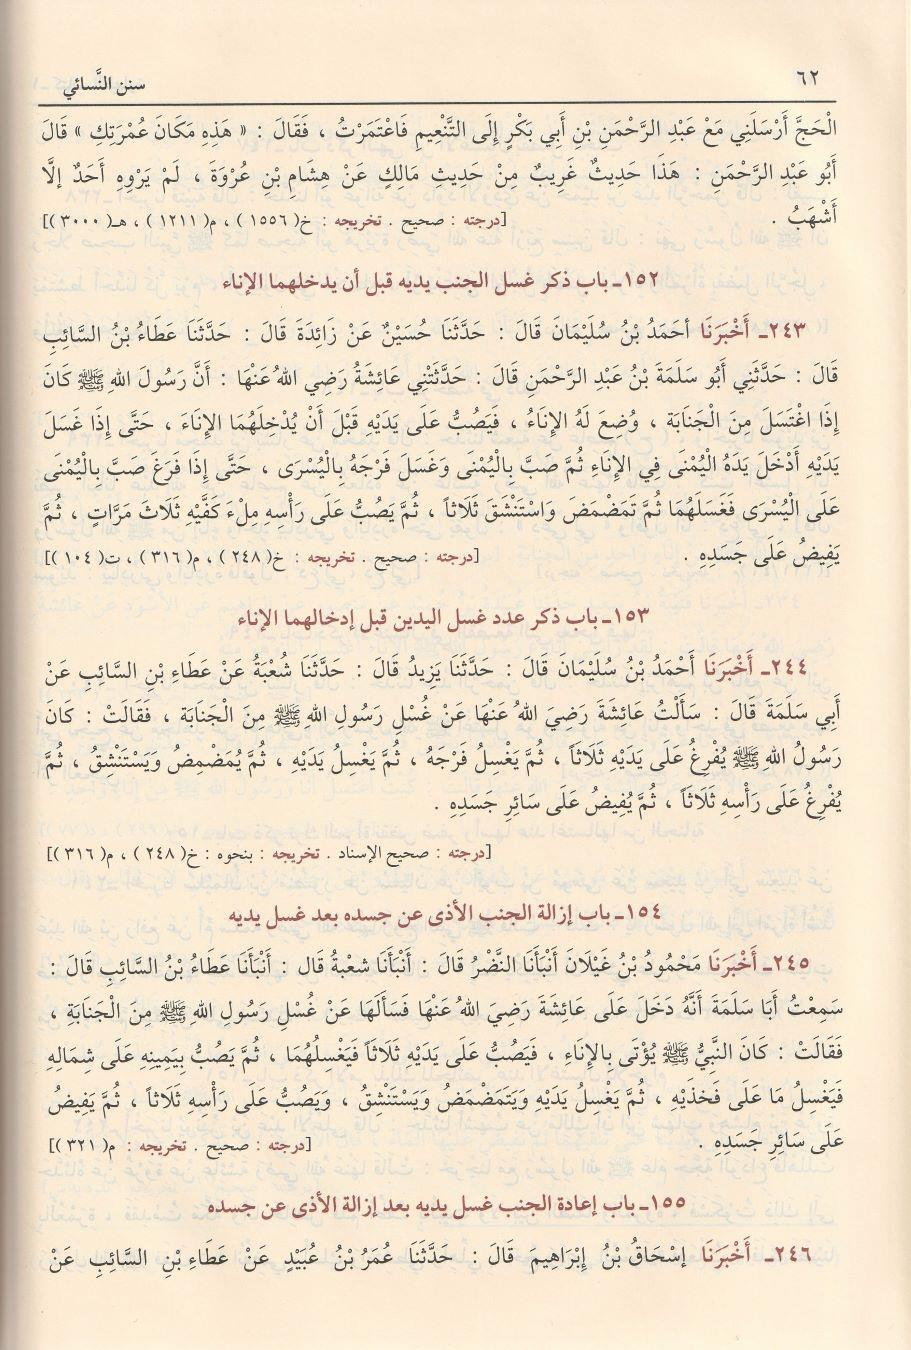 ٦٢ سنن النَّسائي
الْحَجَّ أَرْسَلَنِي مَعَ عَبْدِ الرَّحْمَنِ بْنِ أَبِي بَكْرٍ إِلَى التَّنْعِيمِ فَاعْتَمَرْتُ ، فَقَالَ : « هَذِهِ مَكَانَ عُمْرَتِكِ » قَالَ
أَبُو عَبْدِ الرَّحْمَنِ : هَذَا حَدِيثٌ غَرِيبٌ مِنْ حَدِيثِ مَالِكٍ عَنْ هِشَامِ بْنِ عُرْوَةَ ، لَمْ يَرْوِهِ أَحَدٌ إلَّا
أَشْهَبُ . [درجته : صحيح . تخريجه : خ( ١٥٥٦ ) ، م( ١٢١١ ) ، هـ( ٣٠٠٠ )]
١٥٢ـ باب ذكر غسل الجنب يديه قبل أن يدخلهما الإناء
٢٤٣ـ أَخْبَرَنَا أحَمَدُ بْنُ سُلَيْمَانَ قَالَ : حَدَّثَنَا حُسَيْنٌ عَنْ زَائِدَةَ قَالَ : حَدَّثَنَا عَطَاءُ بْنُ السَّائِبِ
قَالَ : حَدَّثَنِي أَبُو سَلَمَةَ بْنُ عَبْدِ الرَّحْمَنِ قَالَ : حَدَّثَتْنِي عَائِشَةُ رَضِيَ اللهُ عَنْهَا : أَنَّ رَسُولَ اللهِ ﷺ كَانَ
إِذَا اغْتَسَلَ مِنَ الْجَنَابَةِ ، وُضِعَ لَهُ الإِنَاءُ ، فَيَصُبُّ عَلَى يَدَيْهِ قَبْلَ أَنْ يُدْخِلَهُمَا الإِنَاءَ ، حَتَّى إِذَا غَسَلَ
يَدَيْهِ أَدْخَلَ يَدَهُ الْيُمْنَى فِي الإِنَاءِ ثُمَّ صَبَّ بِالْيُمْنَى وَغَسَلَ فَرْجَهُ بِالْيُسْرَى ، حَتَّى إِذَا فَرَغَ صَبَّ بِالْيُمْنَى
عَلَى الْيُسْرَى فَغَسَلَهُمَا ثُمَّ تَمَضْمَضَ وَاسْتَنْشَقَ ثَلَاثاً ، ثُمَّ يَصُبُّ عَلَى رَأْسِهِ مِلْءَ كَفَّيْهِ ثَلَاثَ مَرَّاتٍ ، ثُمَّ
يَفِيضُ عَلَى جَسَدِهِ . [درجته : صحيح . تخريجه : خ( ٢٤٨ ) ، م( ٣١٦ ) ، ت( ١٠٤ )]
١٥٣ـ باب ذكر عدد غسل اليدين قبل إدخالهما الإناء
٢٤٤ـ أَخْبَرَنَا أَحْمَدُ بْنُ سُلَيْمَانَ قَالَ : حَدَّثَنَا يَزِيدُ قَالَ : حَدَّثَنَا شُعْبَةُ عَنْ عَطَاءِ بْنِ السَّائِبِ عَنْ
أَبِي سَلَمَةَ قَالَ : سَأَلْتُ عَائِشَةَ رَضِيَ اللهُ عَنْهَا عَنْ غُسْلِ رَسُولِ اللهِ ﷺ مِنَ الْجَنَابَة ، فَقَالَتْ : كَانَ
رَسُولُ اللهِ ﷺ يُفْرِغُ عَلَى يَدَيْهِ ثَلَاثاً ، ثُمَّ يَغْسِلُ فَرْجَهُ ، ثُمَّ يَغْسِلُ يَدَيْهِ ، ثُمَّ يُمَضْمِضُ وَيَسْتَنْشِقُ ، ثُمَّ
يُفْرِغُ عَلَى رَأْسِهِ ثَلَاثاً ، ثُمَّ يُفِيضُ عَلَى سَائِرِ جَسَدِهِ .
[درجته : صحيح الإسناد . تخريجه : بنحوه : خ( ٢٤٨ ) ، م( ٣١٦ )]
١٥٤ـ باب إزالة الجنب الأذى عن جسده بعد غسل يديه
٢٤٥ـ أَخْبَرَنَا مَحْمُودُ بْنُ غَيْلَانَ أَنْبَأَنَا النَّضْرُ قَالَ : أَنْبَأَنَا شعْبةُ قَال : أَنْبَأَنَا عَطَاءُ بْنُ السَّائِبِ قَالَ :
سَمِعْتُ أَبَا سَلَمَةَ أَنَّهُ دَخَلَ عَلَى عَائِشَةَ رَضِيَ اللهُ عَنْهَا فَسَأَلَهَا عَنْ غُسْلِ رَسُولِ اللهِ ﷺ مِنَ الْجَنَابَةِ ،
فَقَالَتْ : كَانَ النَّبِيُّ ﷺ يُؤْتَى بِالإِنَاءِ ، فَيَصُبُّ عَلَى يَدَيْهِ ثَلَاثاً فَيَغْسِلُهُمَا ، ثُمَّ يَصُبُّ بِيَمِينِهِ عَلَى شِمَالِهِ
فَيَغْسِلُ مَا عَلَى فَخذَيْهِ ، ثُمَّ يَغْسِلُ يَدَيْهِ وَيَتَمَضْمَضُ وَيَسْتَنْشِقُ ، وَيَصُبُّ عَلَى رَأْسِهِ ثَلَاثاً ، ثُمَّ يَفِيضُ
عَلَى سَائِرِ جَسَدِهِ . [درجته : صحيح . تخريجه : م( ٣٢١ )]
١٥٥ـ باب إعادة الجنب غسل يديه بعد إزالة الأذى عن جسده
٢٤٦ـ أَخْبَرَنَا إسْحَاقُ بْنُ إِبْرَاهِيمَ قَالَ : حَدَّثَنَا عُمَرُ بْنُ عُبَيْدٍ عَنْ عَطَاءِ بْنِ السَّائِبِ عَنْ